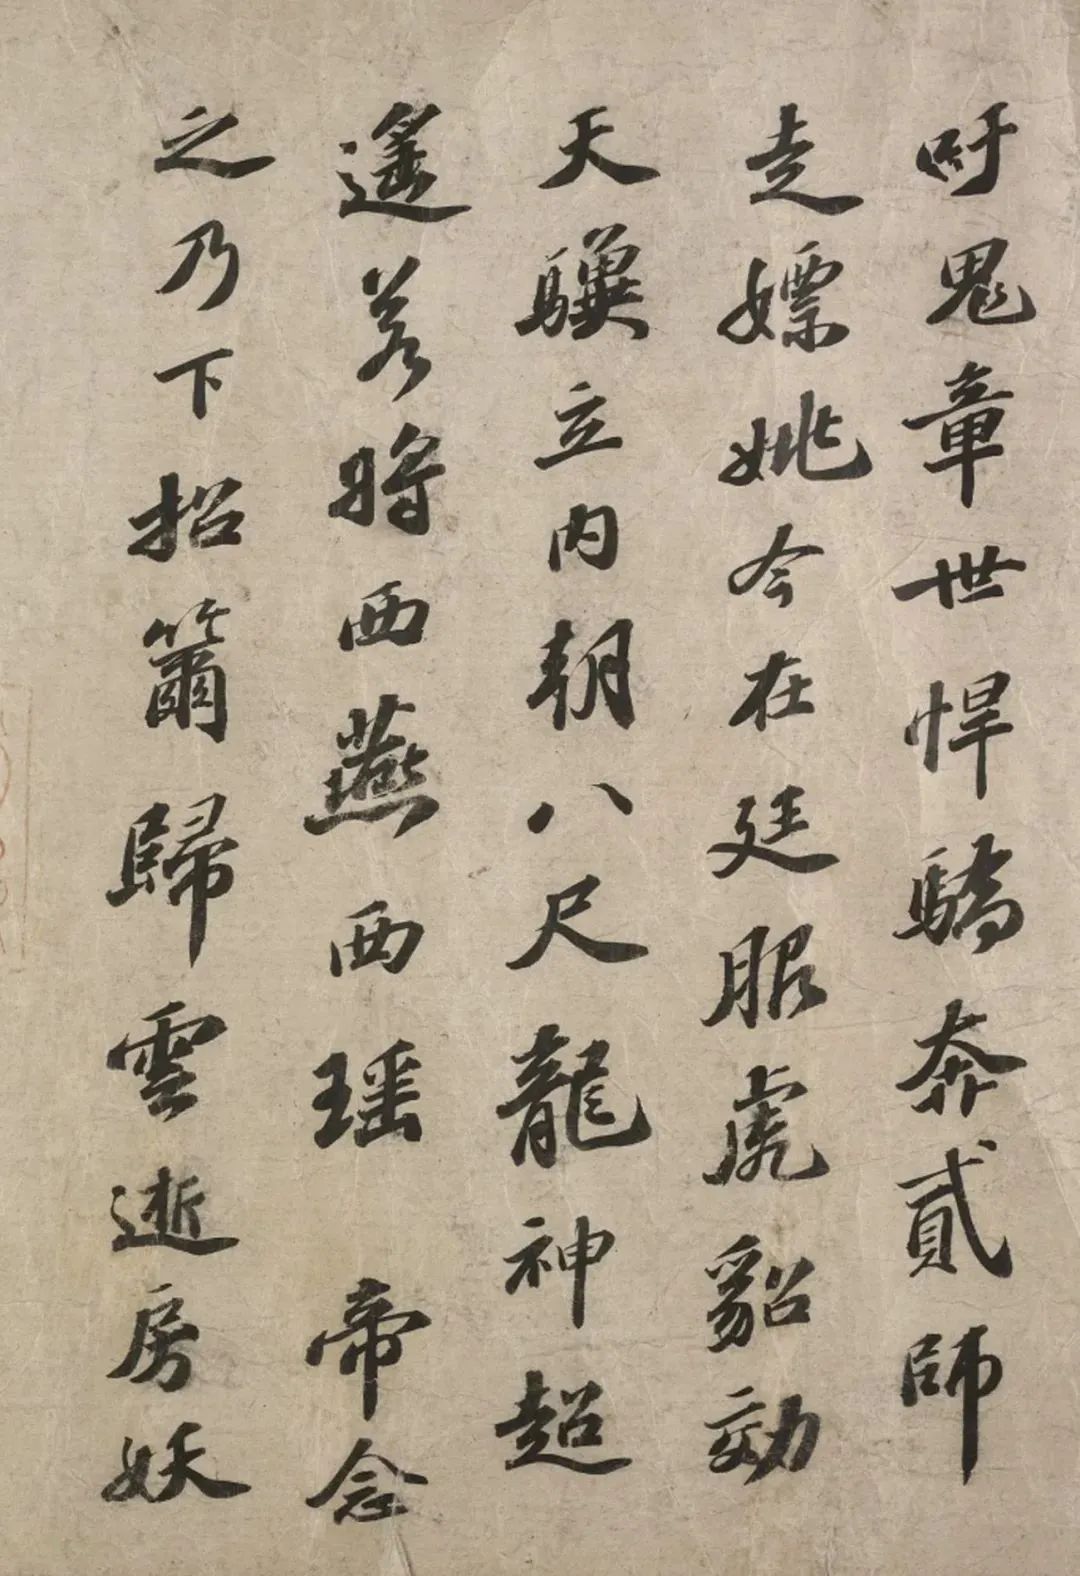 吁鬼章世悍驕奔貳師
走嫖姚今在廷服虎貂効
天驥立内朝八尺龍神超
遙若將西燕西瑶帝念
之乃下招籋歸雲逝房妖